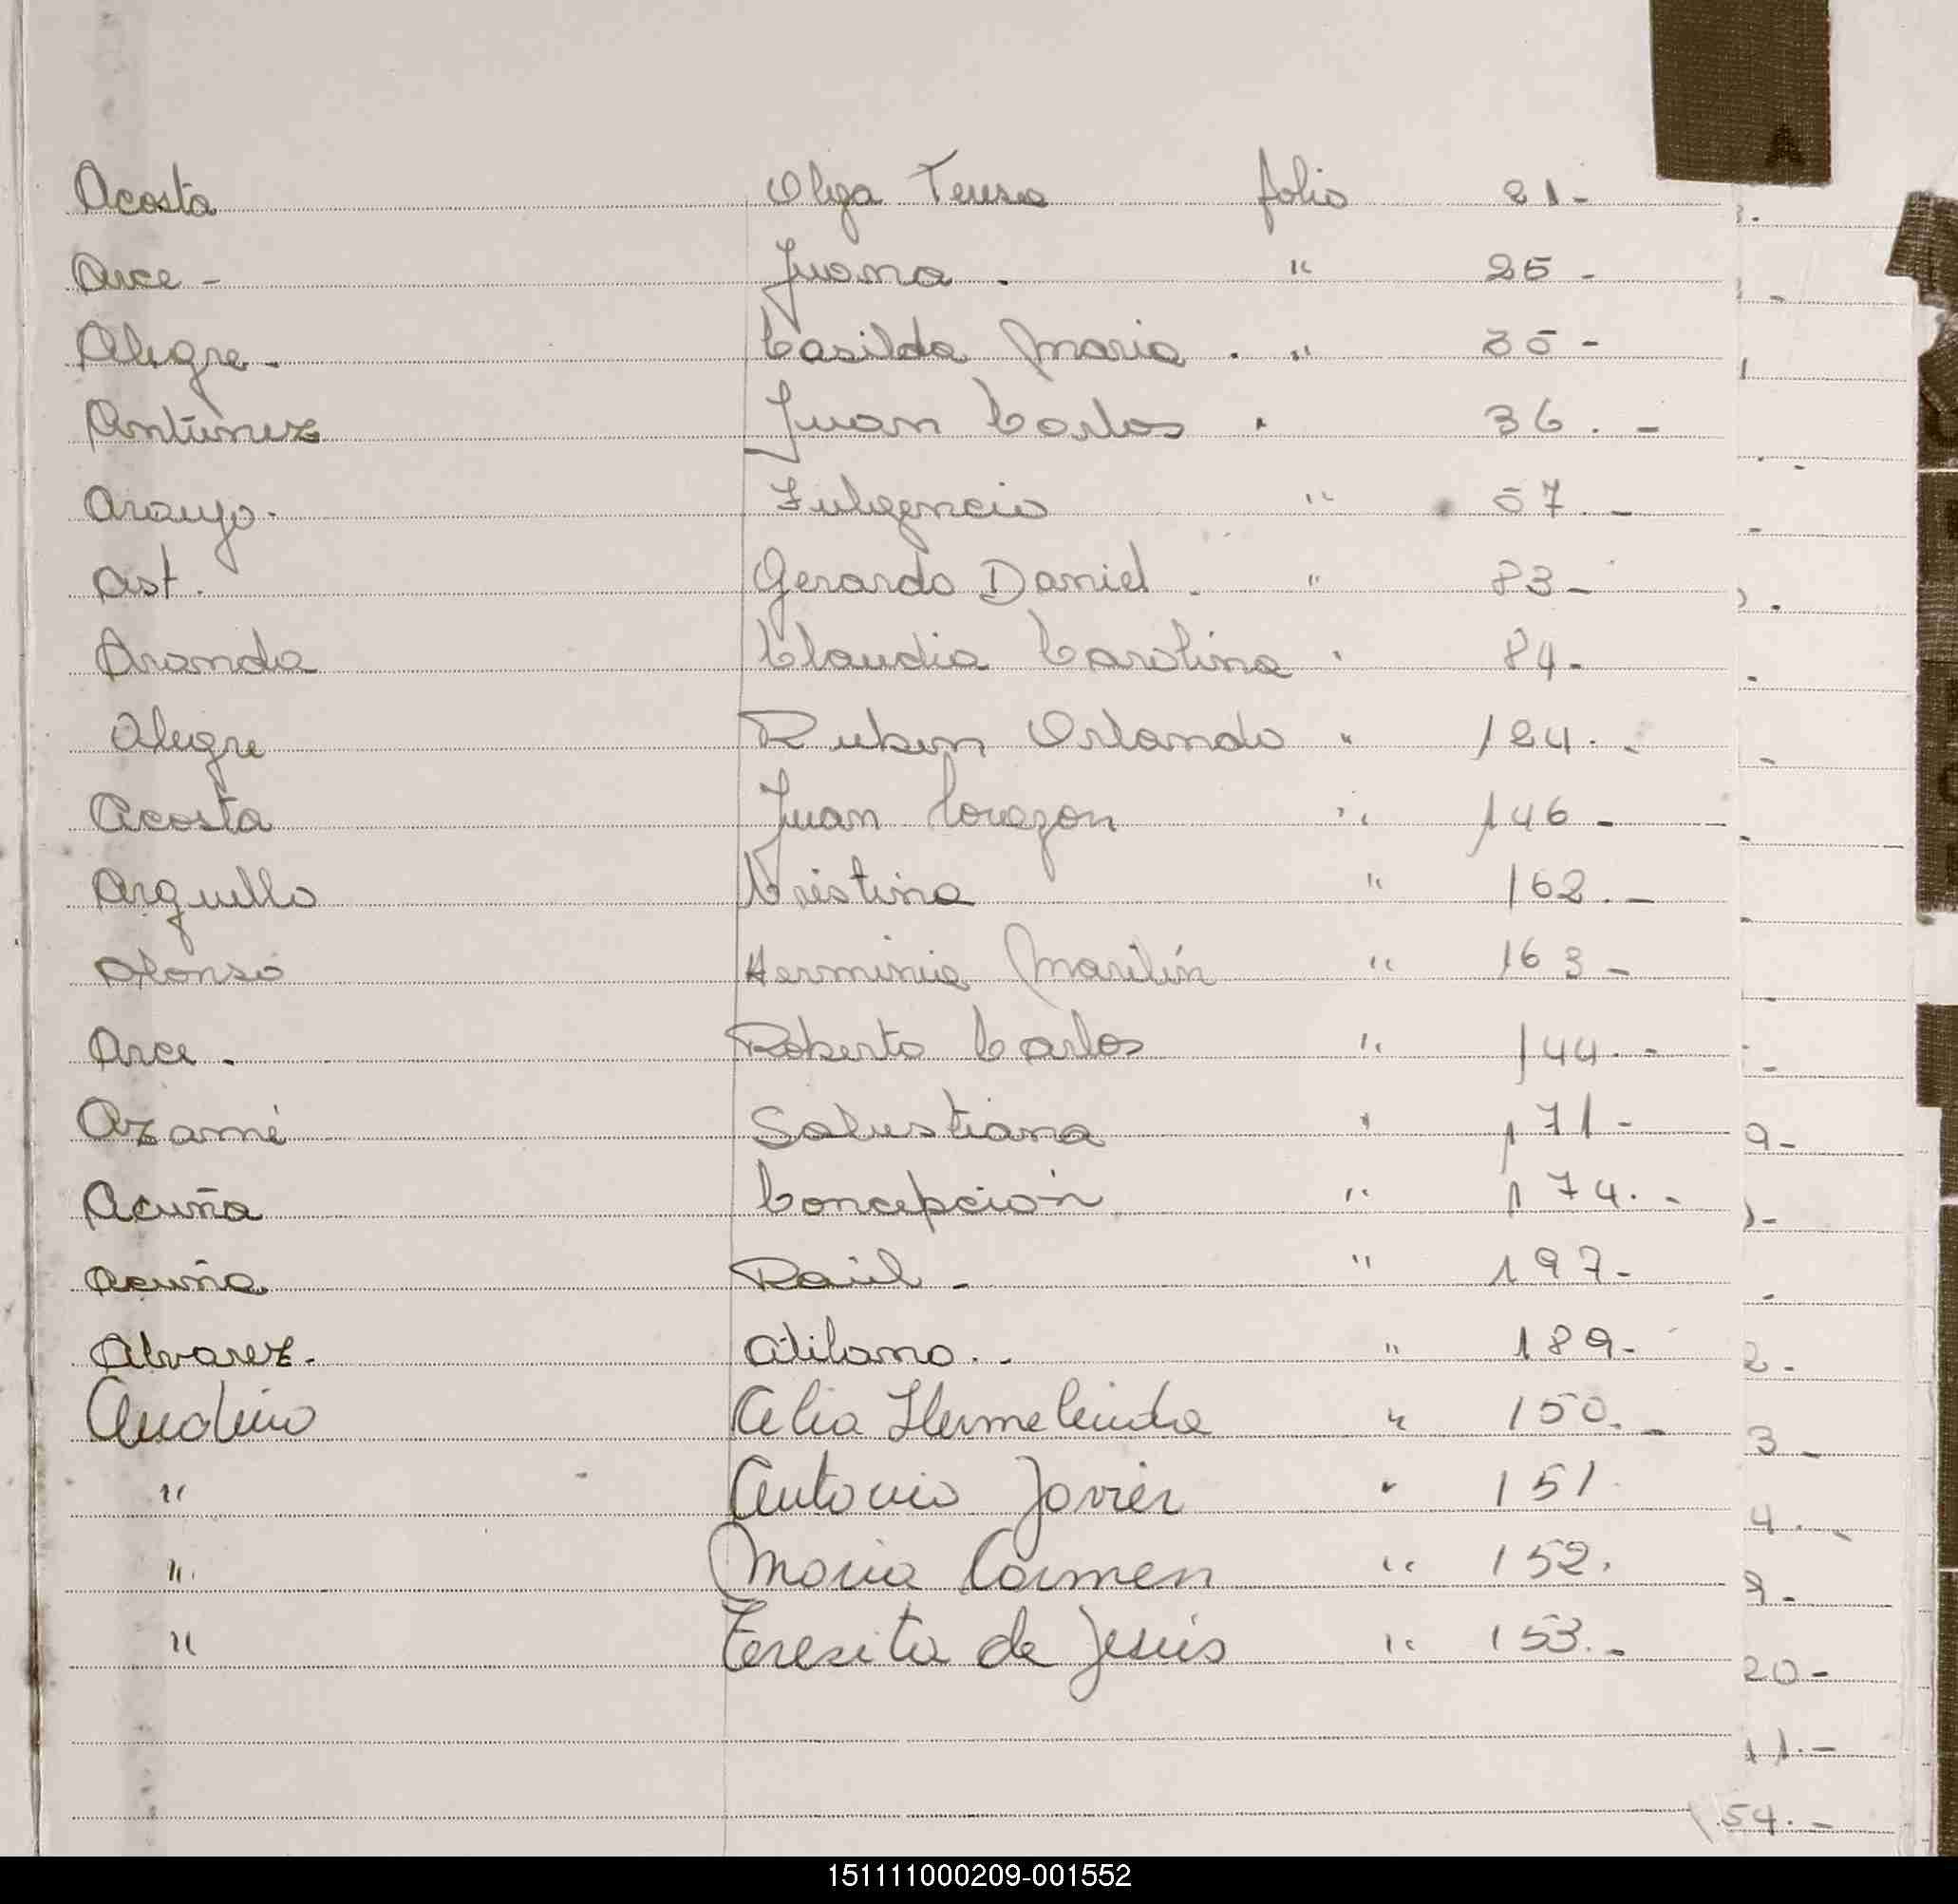 A
Acosta Olga Teresa folio 21-
Arce - Juana . " 25 -
Alegre - Casilda Maria . " 35 -
Antúnez Juan Carlos " 36. -
Araujo. Fulgencio " 57. -
Ast. Gerardo Daniel . " 83-
Aranda Claudia Carolina " 84-
Alegre Ruben Orlando " 124. -
Acosta Juan Corazon " 146 -
Arguello Cristina " 162. -
Alonso Herminia Marilín " 163 -
Arce . Roberto Carlos " 144. -
Azamé Salustiana " 171 -
Acuña Concepción " 174. -
Acuña Raúl - " 197-
Alvarez. Atilano. . " 189-
Andino Celia Hermelinda " 150. -
" Antonio Javier " 151
" Maria Carmen " 152.
" Teresita de Jesús " 153. -
9-
2-
3 -
4. -
9-
20-
11. -
54. -
151111000209-001552